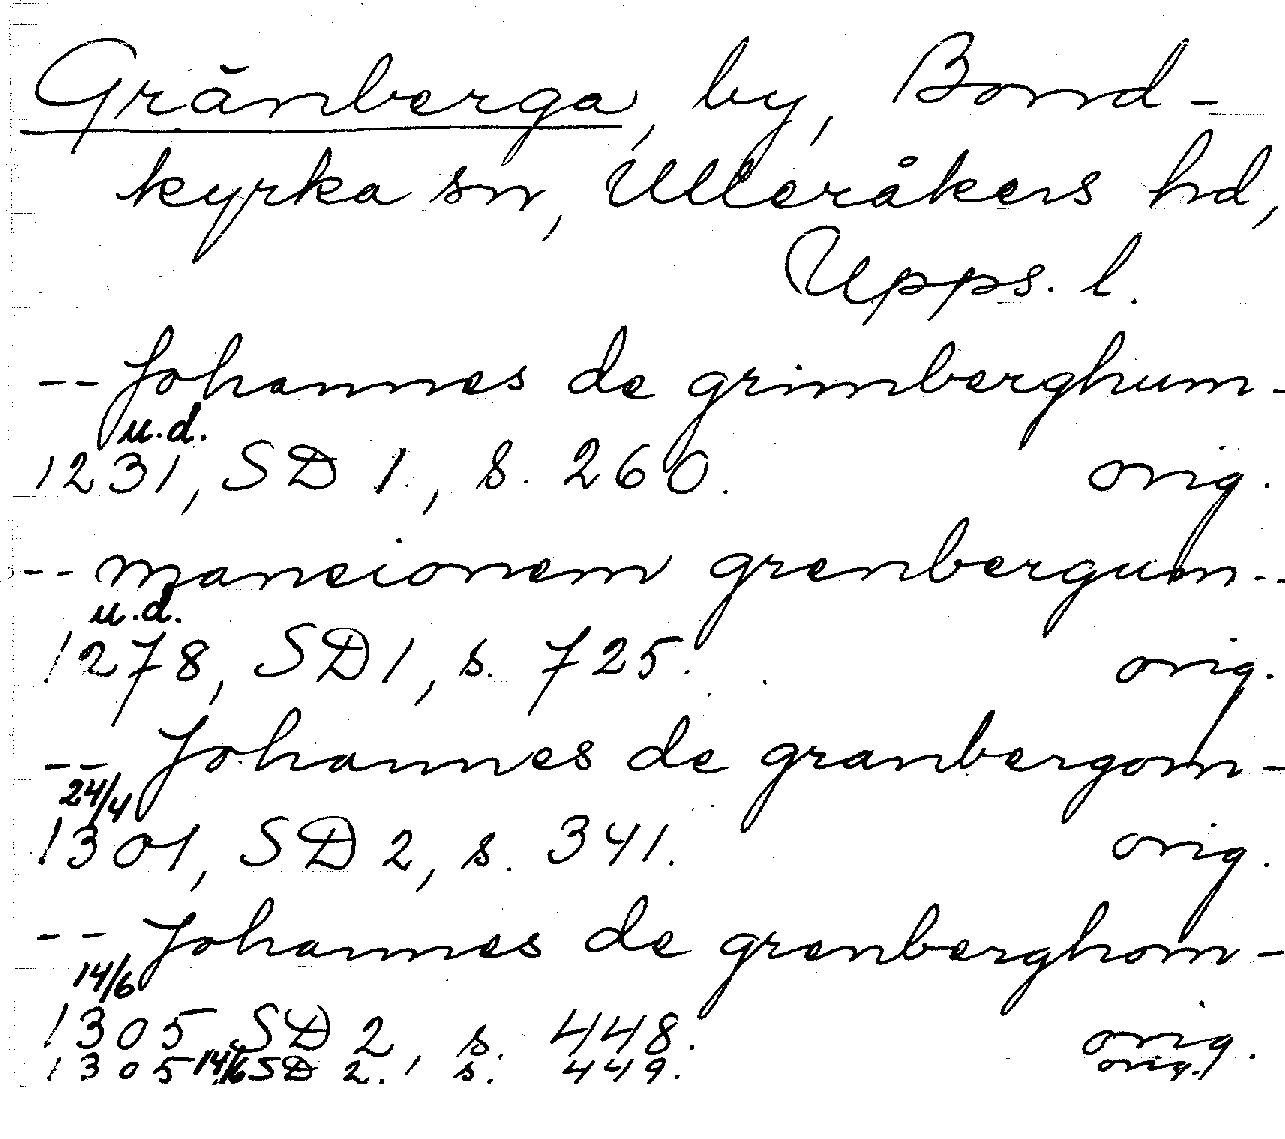 Grănberga, by, Bond-
kyrka sn, Ulleråkers hd,
Upps. l.
-- Johannes de grimberghum -
u.d.
1231, SD 1, s. 260. orig.
-- mancionem grenbergum --
u.d.
1278, SD 1, s. 725. orig.
-- Johannes de granbergom -
24/4
1301, SD 2, s. 341. orig.
-- Johannes de grenberghom -
14/6
1305 SD 2, s. 448. orig.
1305 14/6 SD 2, s. 449. orig.